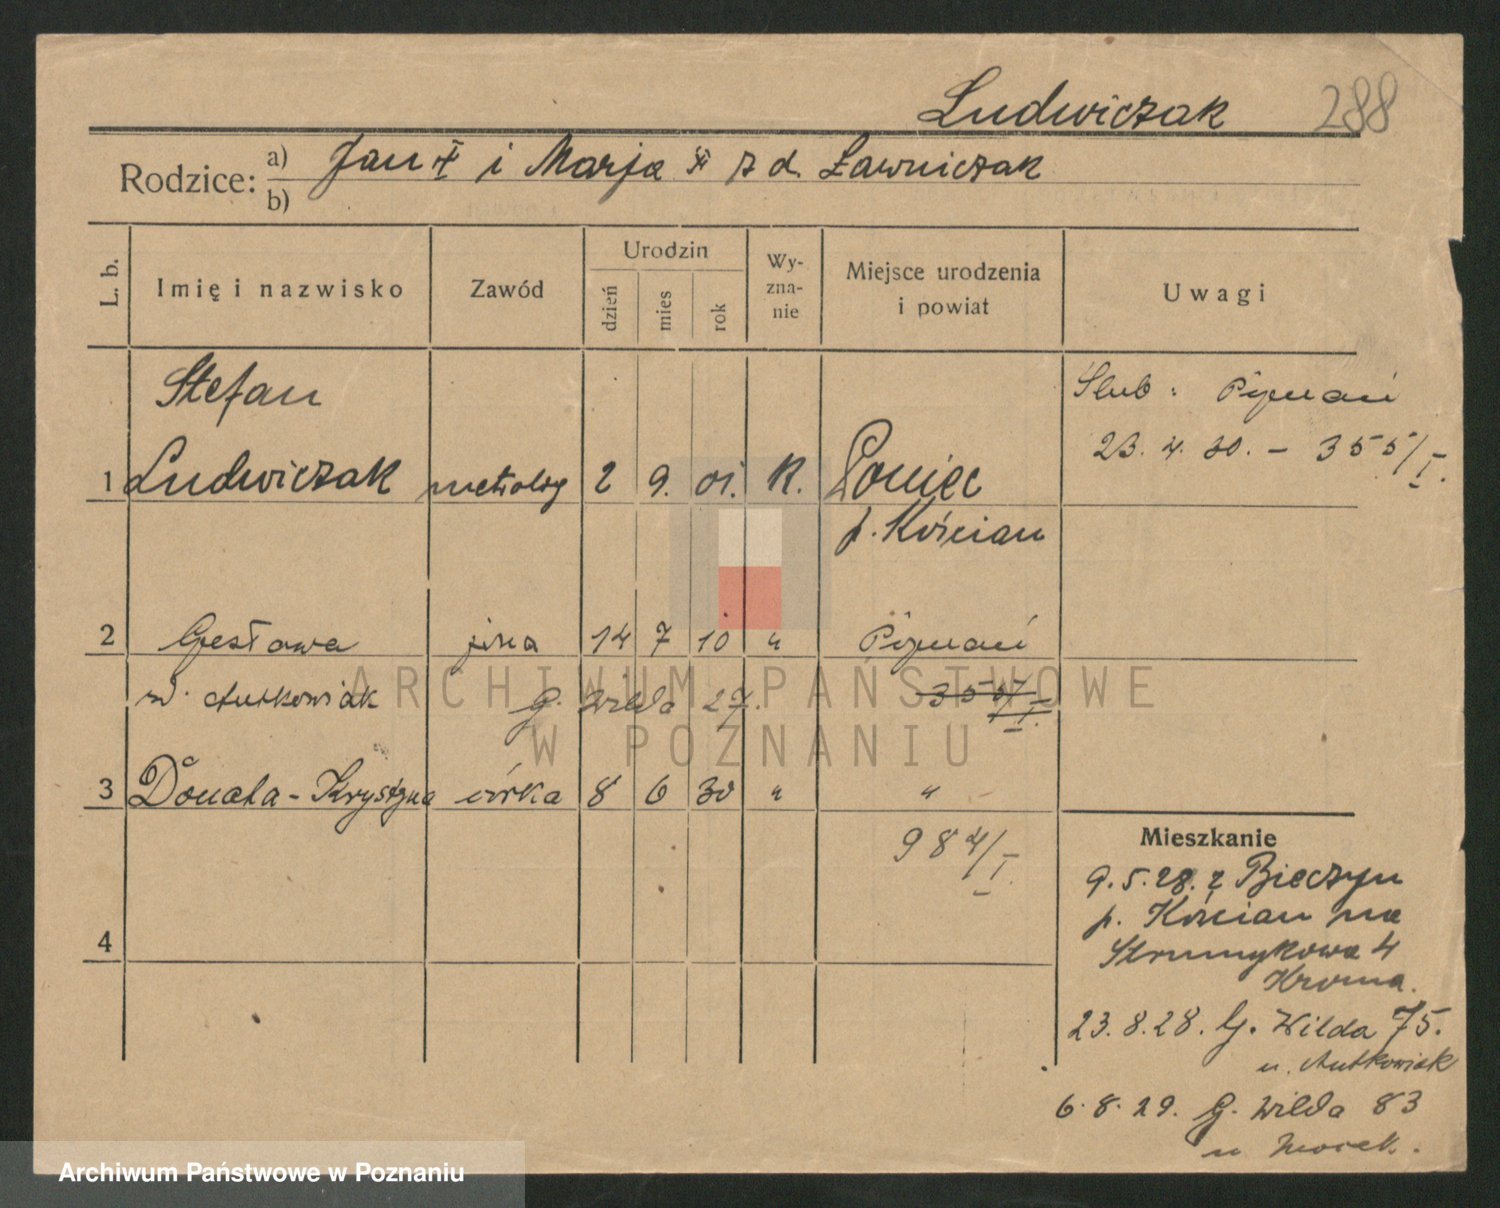 Ludwiczak 288
Rodzice: a) Jan i Marja z d. Ławniczak
b)
L. b.
Imię i nazwisko
Zawód
Urodzin
dzień
mies
rok
Wy-
zna-
nie
Miejsce urodzenia
i powiat
Uwagi
Stefan
1 Ludwiczak 2 9. 01. K. Poniec
p. Kościan
Ślub: Poznań
23. 4. 30. - 355/I.
2 Czesława żona 14 7 10 " Poznań
u. Antkowiak G. Wilda 27. 355/I.
3 Donata-Krystyna córka 8 6 30 " "
984/I.
4
Mieszkanie
9.5.28. z Bieczyn
p. Kościan na
Strumykowa 4
23.8.28. G. Wilda 75.
u. Antkowiak
6.8.29. G. Wilda 83
ARCHIWUM PAŃSTWOWE
W POZNANIU
Archiwum Państwowe w Poznaniu